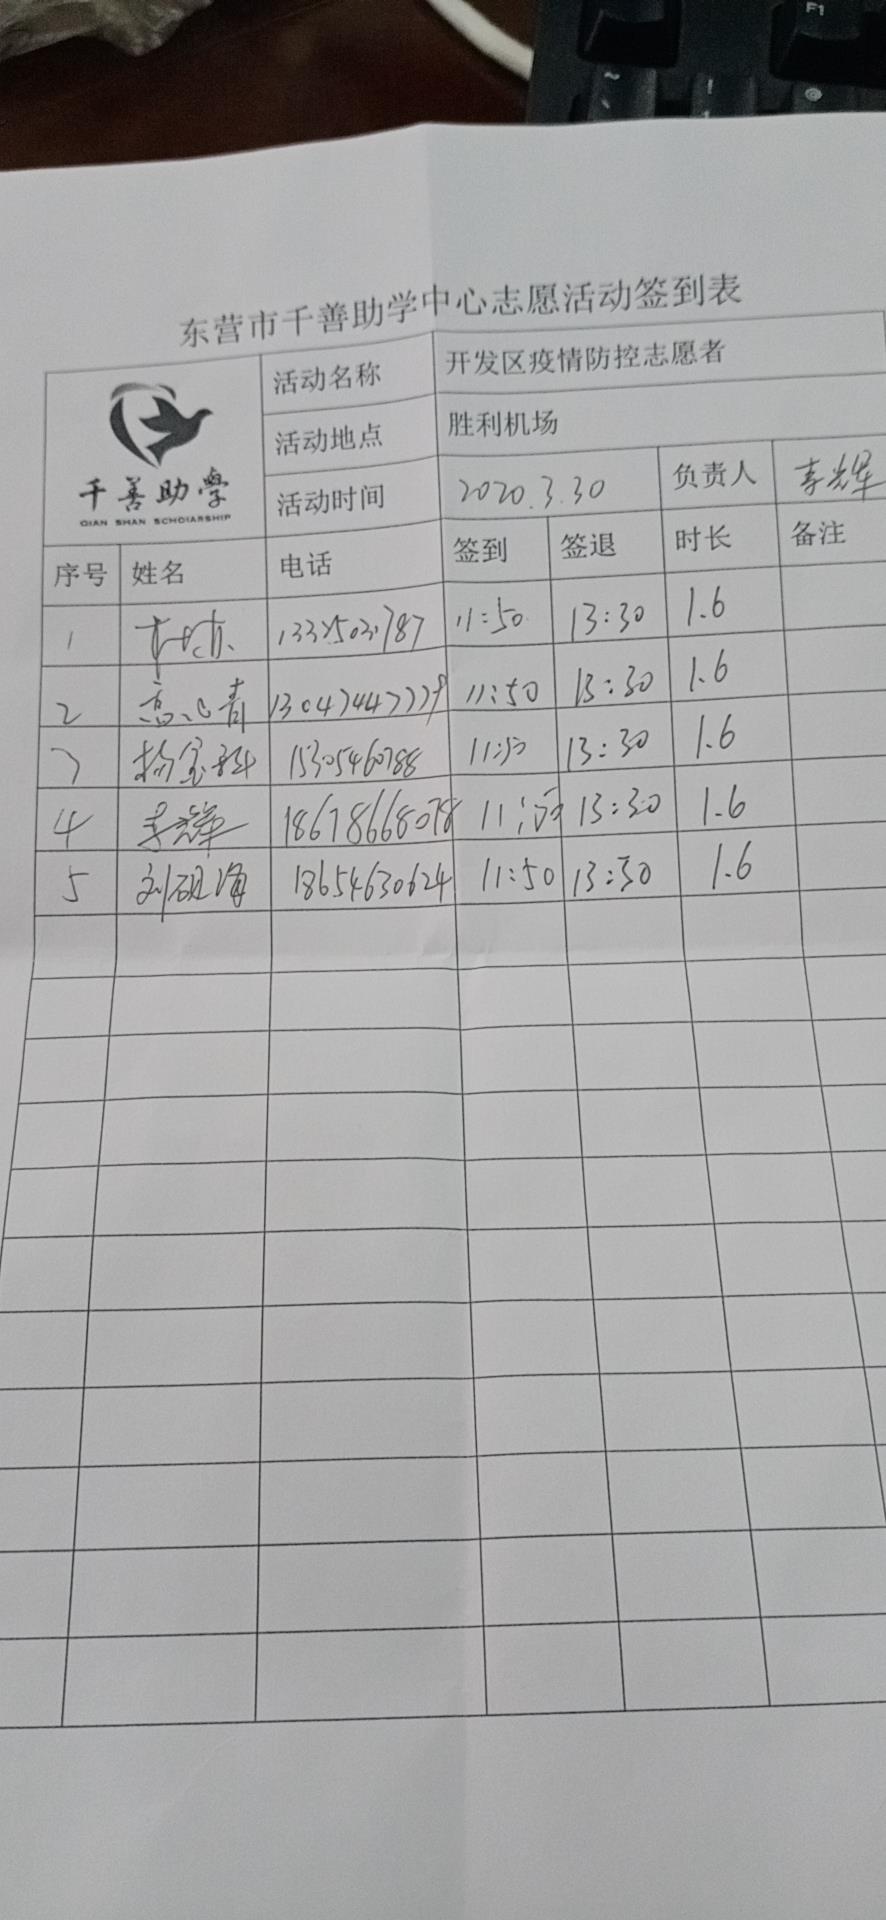 F1
东营市千善助学中心志愿活动签到表
千善助学
QIAN SHAN SCHOIARSHIP
活动名称 开发区疫情防控志愿者
活动地点 胜利机场
活动时间 2020.3.30 负责人 李光辉
序号 姓名 电话 签到 签退 时长 备注
1 11:50 13:30 1.6
2 高心青 13047447779 11:50 13:30 1.6
3 杨宝科 15305460788 11:50 13:30 1.6
4 李光辉 18678668078 11:50 13:30 1.6
5 刘砚海 18654630624 11:50 13:30 1.6